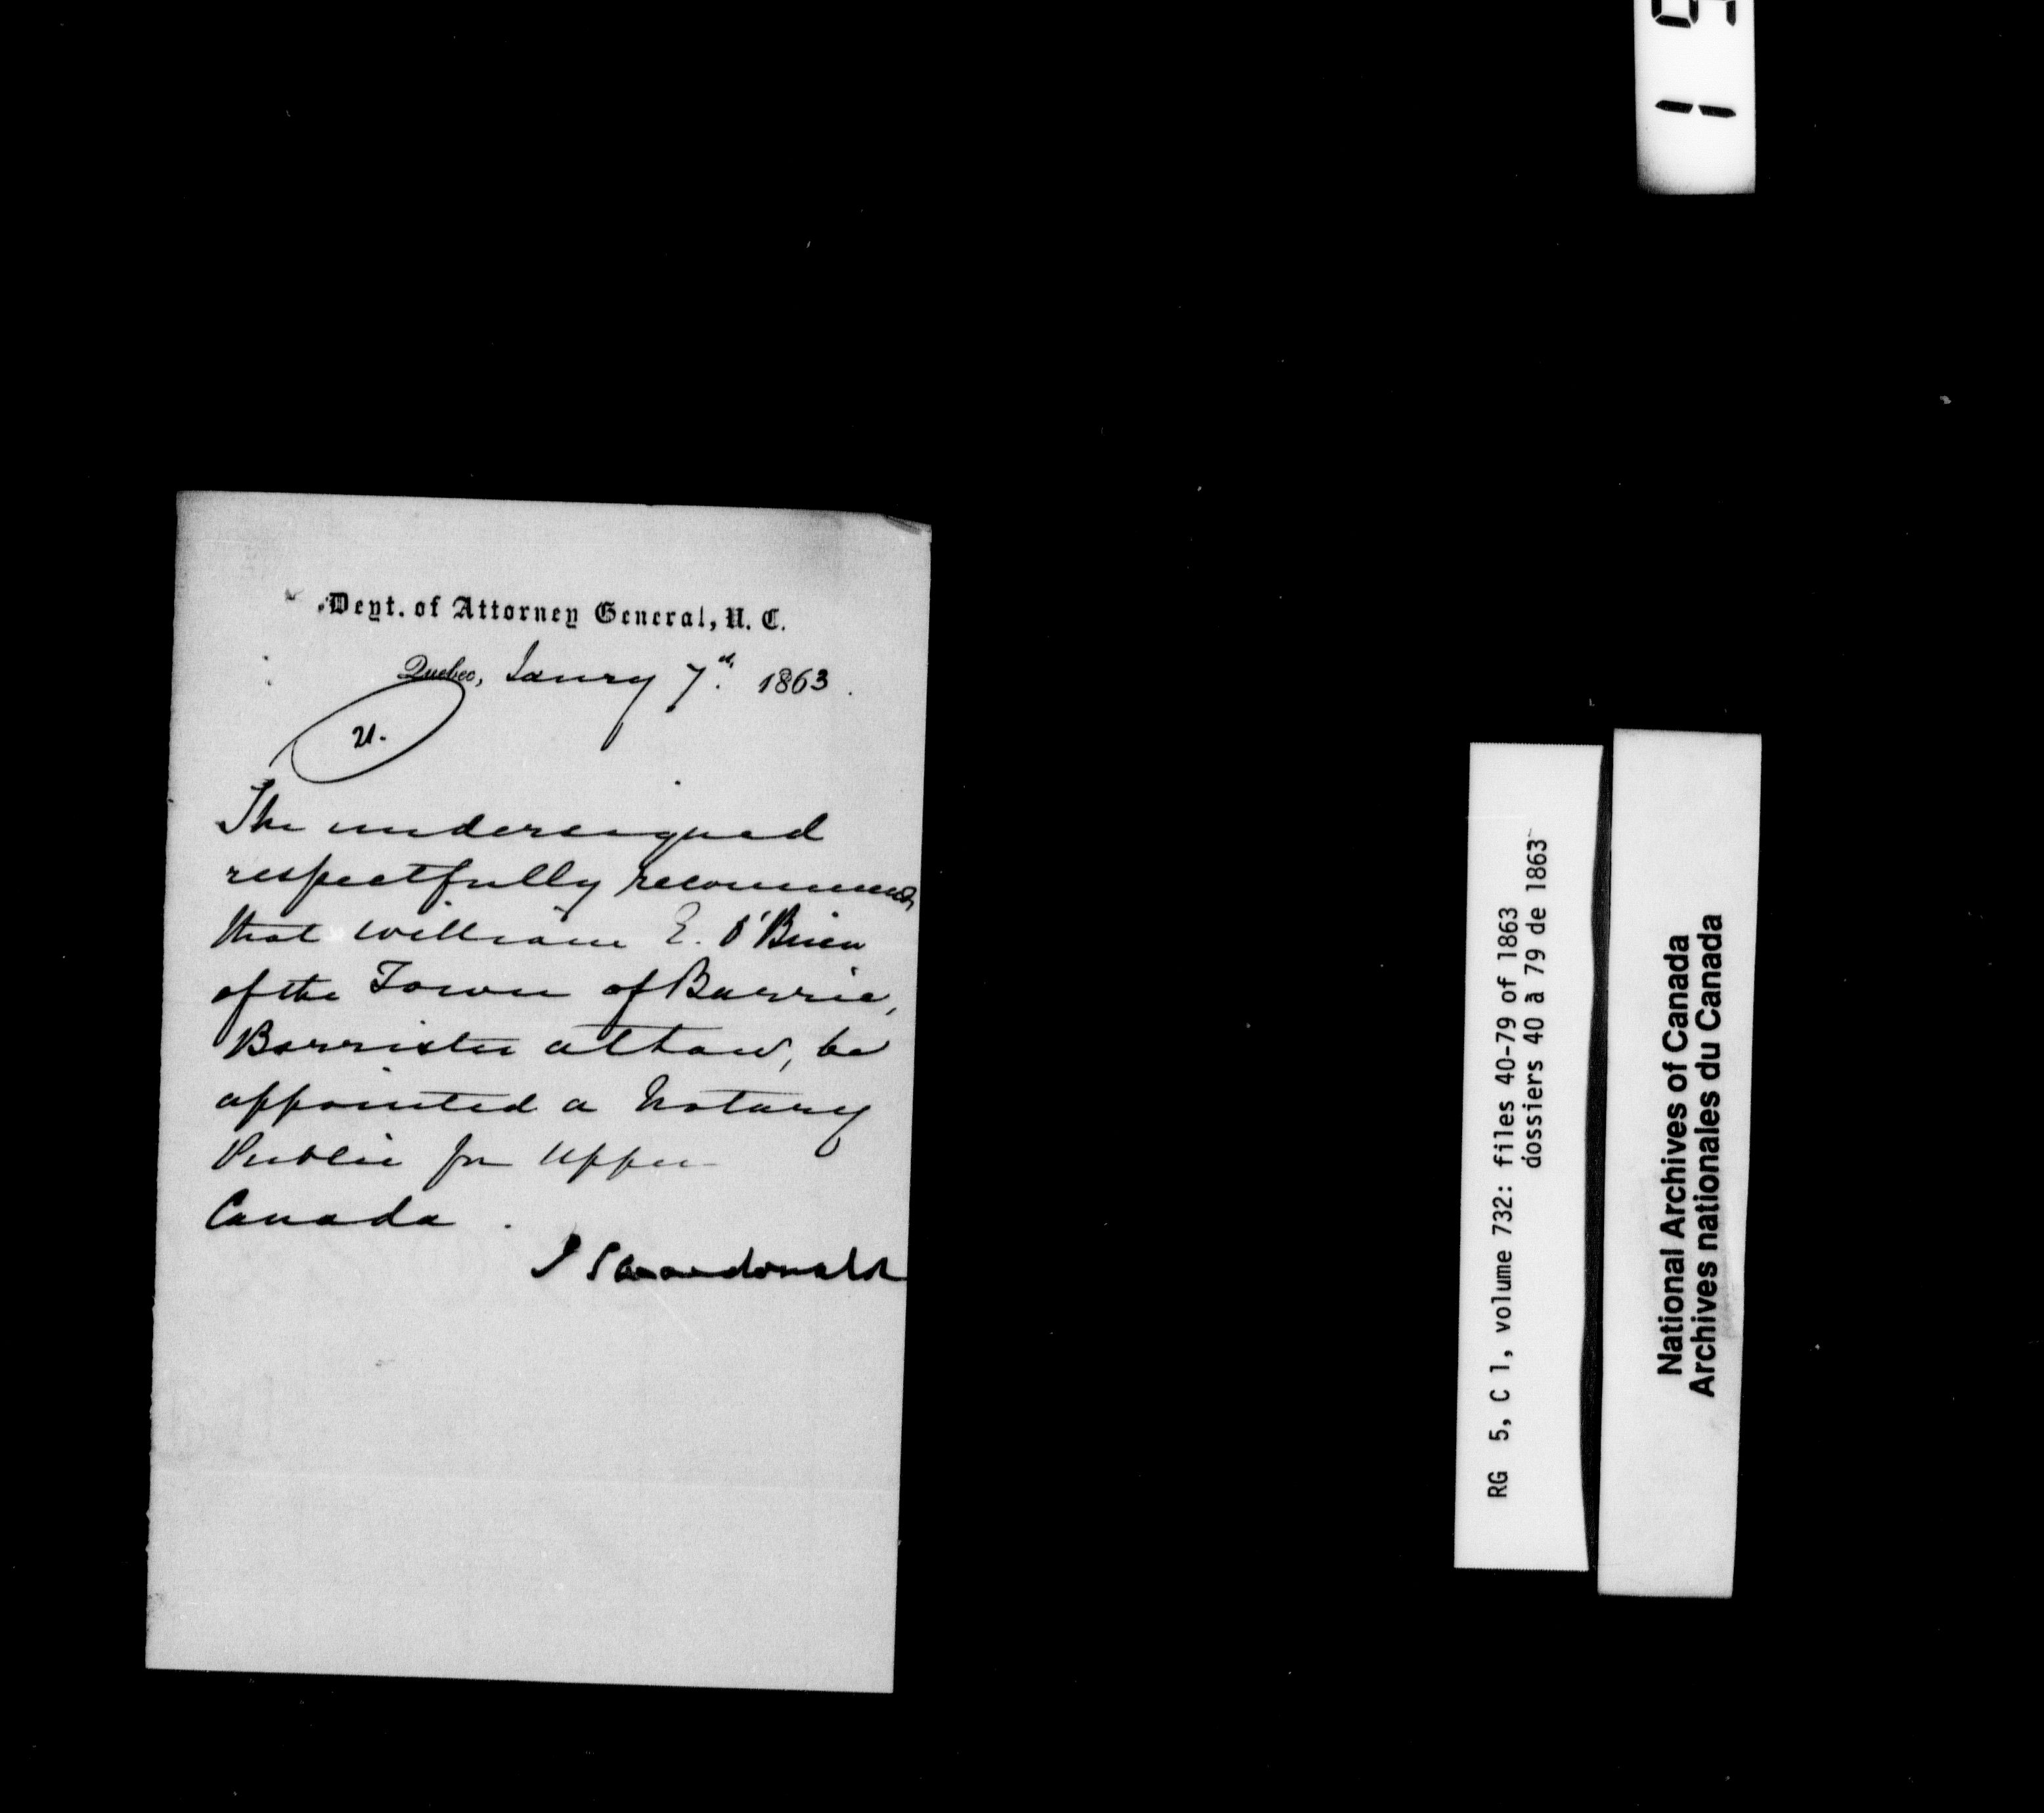 Dept. of Attorney General, U. C.
Quebec, Janry 7th. 1863.
The undersigned
respectfully recommends
that William E. O'Brien
of the Town of Barrie,
Barrister at Law, be
appointed a Notary
Public for Upper
Canada.
J S Macdonald
RG 5, C 1, volume 732: files 40-79 of 1863
dossiers 40 à 79 de 1863
National Archives of Canada
Archives nationales du Canada